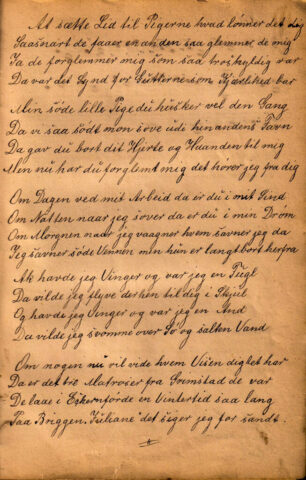 At sætte Lid til Pigerne hvad lønner det dig
Saasnart de faaer en anden saa glemmer de mig
Ja de forglemmer mig som saa troskyldig var
Da var det Synd for Gutterne som Kjærlehed bar
Min søde lille Pige du husker vel den Gang
Da vi saa södt mon sove udi hinandens Favn
Da gav du bort dit Hjerte og Haanden til mig
Men nu har du forglemt mig det hører jeg fra dig
Om Dagen ved mit Arbeid da er du i mit Sind
Om Natten naar jeg sover da er du i min Drøm
Om Morgnen naar jeg vaagner hvem savner jeg da
Jeg savner søde Vennen min hun er langt bort herfra
Ak havde jeg Vinger og var jeg en Fugl
Da vilde jeg flyve derhen til dig i Skjul
Og havde jeg Vinger og var jeg en And
Da vilde jeg svømme over Sø og salten Vand
Om nogen nu vil vide hvem Visen digtet har
Da er det tre Matroser fra Grimstad de var
De laae i Eckernförde en Vintertid saa lang
Paa Briggen "Juliane" det siger jeg for sandt.